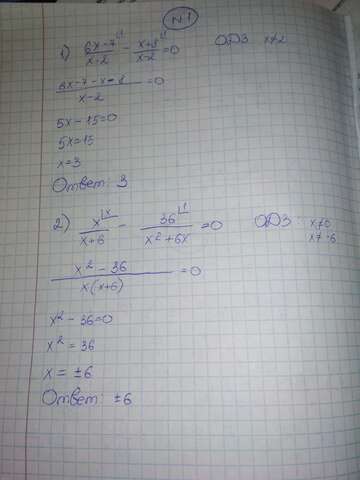 N1
1) (6x-7)/(x-2) - (x+8)/(x-2) = 0 ОДЗ x≠2
(6x-7-x-8)/(x-2) = 0
5x-15=0
5x=15
x=3
Ответ: 3
2) x/(x+6) - 36/(x²+6x) = 0 ОДЗ: x≠0
x≠-6
(x²-36)/(x(x+6)) = 0
x²-36=0
x²=36
x=±6
Ответ: ±6